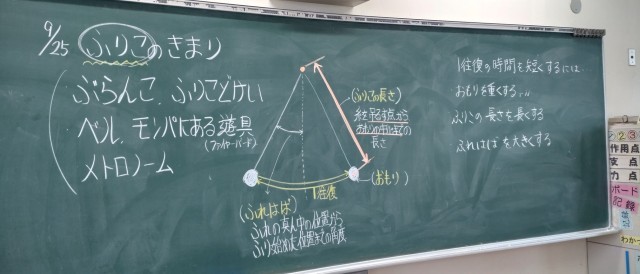 9/25 ふりこのきまり
ぶらんこ、ふりこどけい
ベル、モンパにある遊具
(ファイヤーバード)
メトロノーム
(ふりこの長さ)
糸を吊るす点から
おもりの中心までの
長さ
(おもり)
1往復
(ふれはば)
ふれの真ん中の位置から
ふり始めた位置までの角度
1往復の時間を短くするには…
おもりを重くする…
ふりこの長さを長くする
ふれはばを大きくする
②③
作用点
支点
力点
ボード
記録